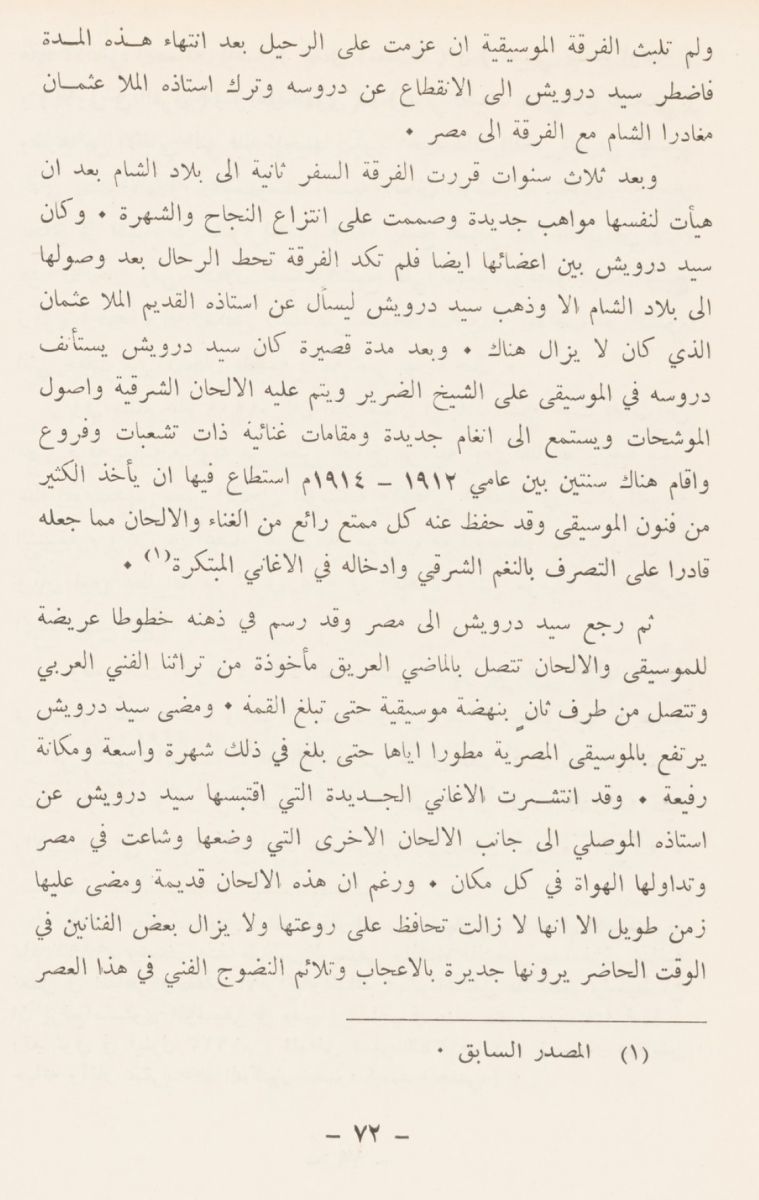 ولم تلبث الفرقة الموسيقية ان عزمت على الرحيل بعد انتهاء هذه المدة
فاضطر سيد درويش الى الانقطاع عن دروسه وترك استاذه الملا عثمان
مغادرا الشام مع الفرقة الى مصر ٠
وبعد ثلاث سنوات قررت الفرقة السفر ثانية الى بلاد الشام بعد ان
هيأت لنفسها مواهب جديدة وصممت على انتزاع النجاح والشهرة ٠ وكان
سيد درويش بين اعضائها ايضا فلم تكد الفرقة تحط الرحال بعد وصولها
الى بلاد الشام الا وذهب سيد درويش ليسأل عن استاذه القديم الملا عثمان
الذي كان لا يزال هناك ٠ وبعد مدة قصيرة كان سيد درويش يستأنف
دروسه في الموسيقى على الشيخ الضرير ويتم عليه الالحان الشرقية واصول
الموشحات ويستمع الى انغام جديدة ومقامات غنائية ذات تشعبات وفروع
واقام هناك سنتين بين عامي ١٩١٢ – ١٩١٤م استطاع فيها ان يأخذ الكثير
من فنون الموسيقى وقد حفظ عنه كل ممتع رائع من الغناء والالحان مما جعله
قادرا على التصرف بالنغم الشرقي وادخاله في الاغاني المبتكرة(١) ٠
ثم رجع سيد درويش الى مصر وقد رسم في ذهنه خطوطا عريضة
للموسيقى والالحان تتصل بالماضي العريق مأخوذة من تراثنا الفني العربي
وتتصل من طرف ثانٍ بنهضة موسيقية حتى تبلغ القمة ٠ ومضى سيد درويش
يرتفع بالموسيقى المصرية مطورا اياها حتى بلغ في ذلك شهرة واسعة ومكانة
رفيعة ٠ وقد انتشرت الاغاني الجديدة التي اقتبسها سيد درويش عن
استاذه الموصلي الى جانب الالحان الاخرى التي وضعها وشاعت في مصر
وتداولها الهواة في كل مكان ٠ ورغم ان هذه الالحان قديمة ومضى عليها
زمن طويل الا انها لا زالت تحافظ على روعتها ولا يزال بعض الفنانين في
الوقت الحاضر يرونها جديرة بالاعجاب وتلائم النضوج الفني في هذا العصر
(١) المصدر السابق ٠
– ٧٢ –